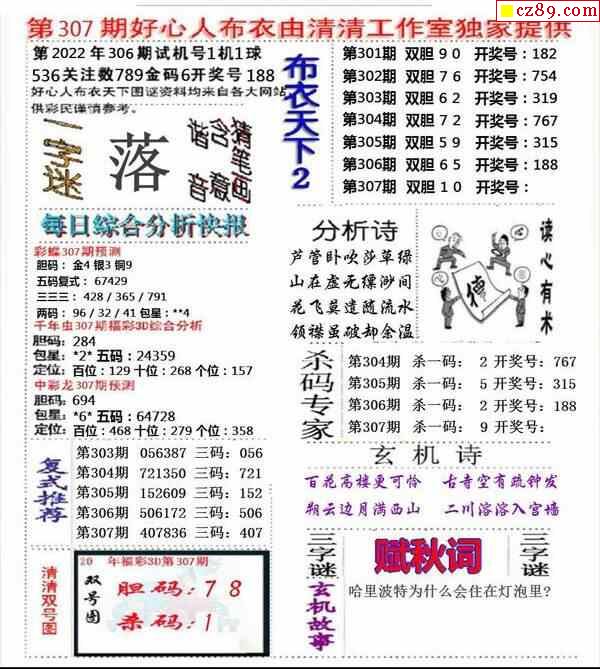 cz89.com
第307期好心人布衣由清清工作室独家提供
第2022年306期试机号1机1球
536关注数789金码6开奖号188
好心人布衣天下图谜资料均来自各大网站
供彩民谨慎参考。
一字谜
落
猜笔画
含意
谐音
每日綜合分析快报
彩蝶307期预测
胆码：金4 银3 铜9
五码复式：67429
三三三：428 / 365 / 791
两码：96 / 32 / 41 包星：**4
千年虫307期福彩3D综合分析
胆码：284
包星：*2* 五码：24359
定位：百位：129 十位：268 个位：157
中彩龙307期预测
胆码：694
包星：*6* 五码：64728
定位：百位：468 十位：279 个位：358
复式推荐
第303期 056387 三码：056
第304期 721350 三码：721
第305期 152609 三码：152
第306期 506172 三码：506
第307期 407836 三码：407
清清双号图
20 年福彩3D第307期
双号图
胆码：78
杀码：1
布衣天下2
第301期 双胆90 开奖号：182
第302期 双胆76 开奖号：754
第303期 双胆62 开奖号：319
第304期 双胆72 开奖号：767
第305期 双胆59 开奖号：315
第306期 双胆65 开奖号：188
第307期 双胆10 开奖号：
分析诗
芦管卧吹莎草绿
山在虚无缥渺间
花飞莫遣随流水
领襟虽破却余温
德
读心有术
杀码专家
第304期 杀一码： 2 开奖号：767
第305期 杀一码： 5 开奖号：315
第306期 杀一码： 2 开奖号：188
第307期 杀一码： 9 开奖号：
玄机诗
百花高楼更可怜 古寺空有疏钟发
朔云边月满西山 二川溶溶入宫墙
三字谜
赋秋词
三字谜
玄机故事
哈里波特为什么会住在灯泡里?